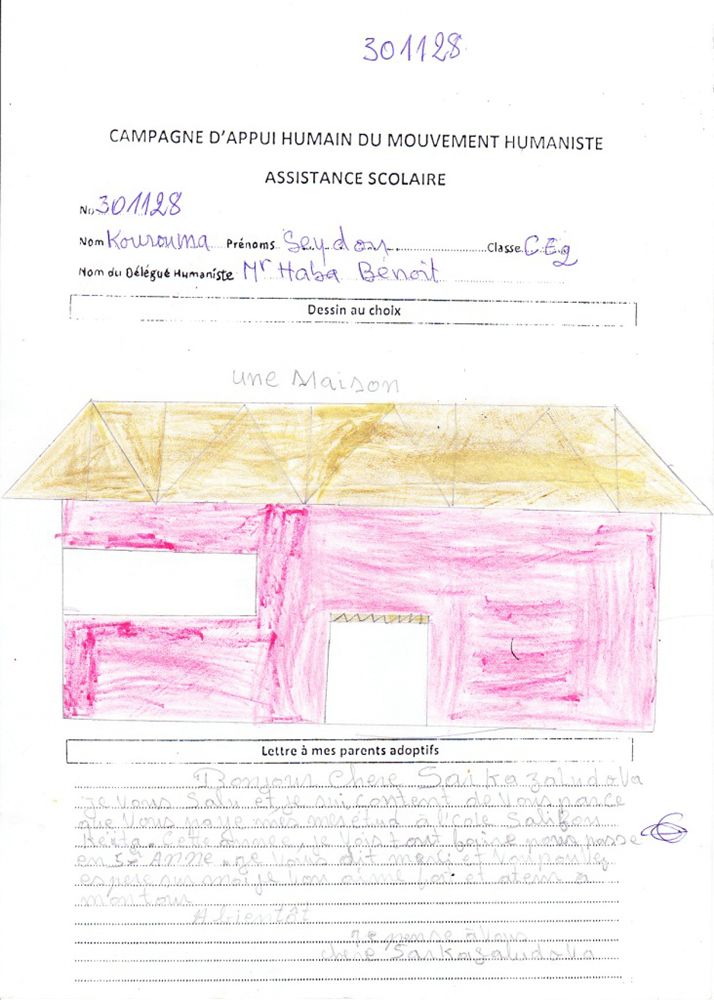 301128
CAMPAGNE D'APPUI HUMAIN DU MOUVEMENT HUMANISTE
ASSISTANCE SCOLAIRE
No 301128
Nom Kourouma Prénoms Seydou Classe CE2
Nom du Délégué Humaniste Mr Haba Benoît
Dessin au choix
une Maison
Lettre à mes parents adoptifs
Bonjour Chere Sarka zaludova
je vous Salu et je sui content de vous parce
que vous paye mes metud à l'cole Salifou
Keita. cette année, je fais tout pour passe
en 5è Anne. je vous dit merci et vous pouvez
espere sur moi je vou aime for et
mon tour
A bientAt
je pense à vous
chere Sarkazaludova